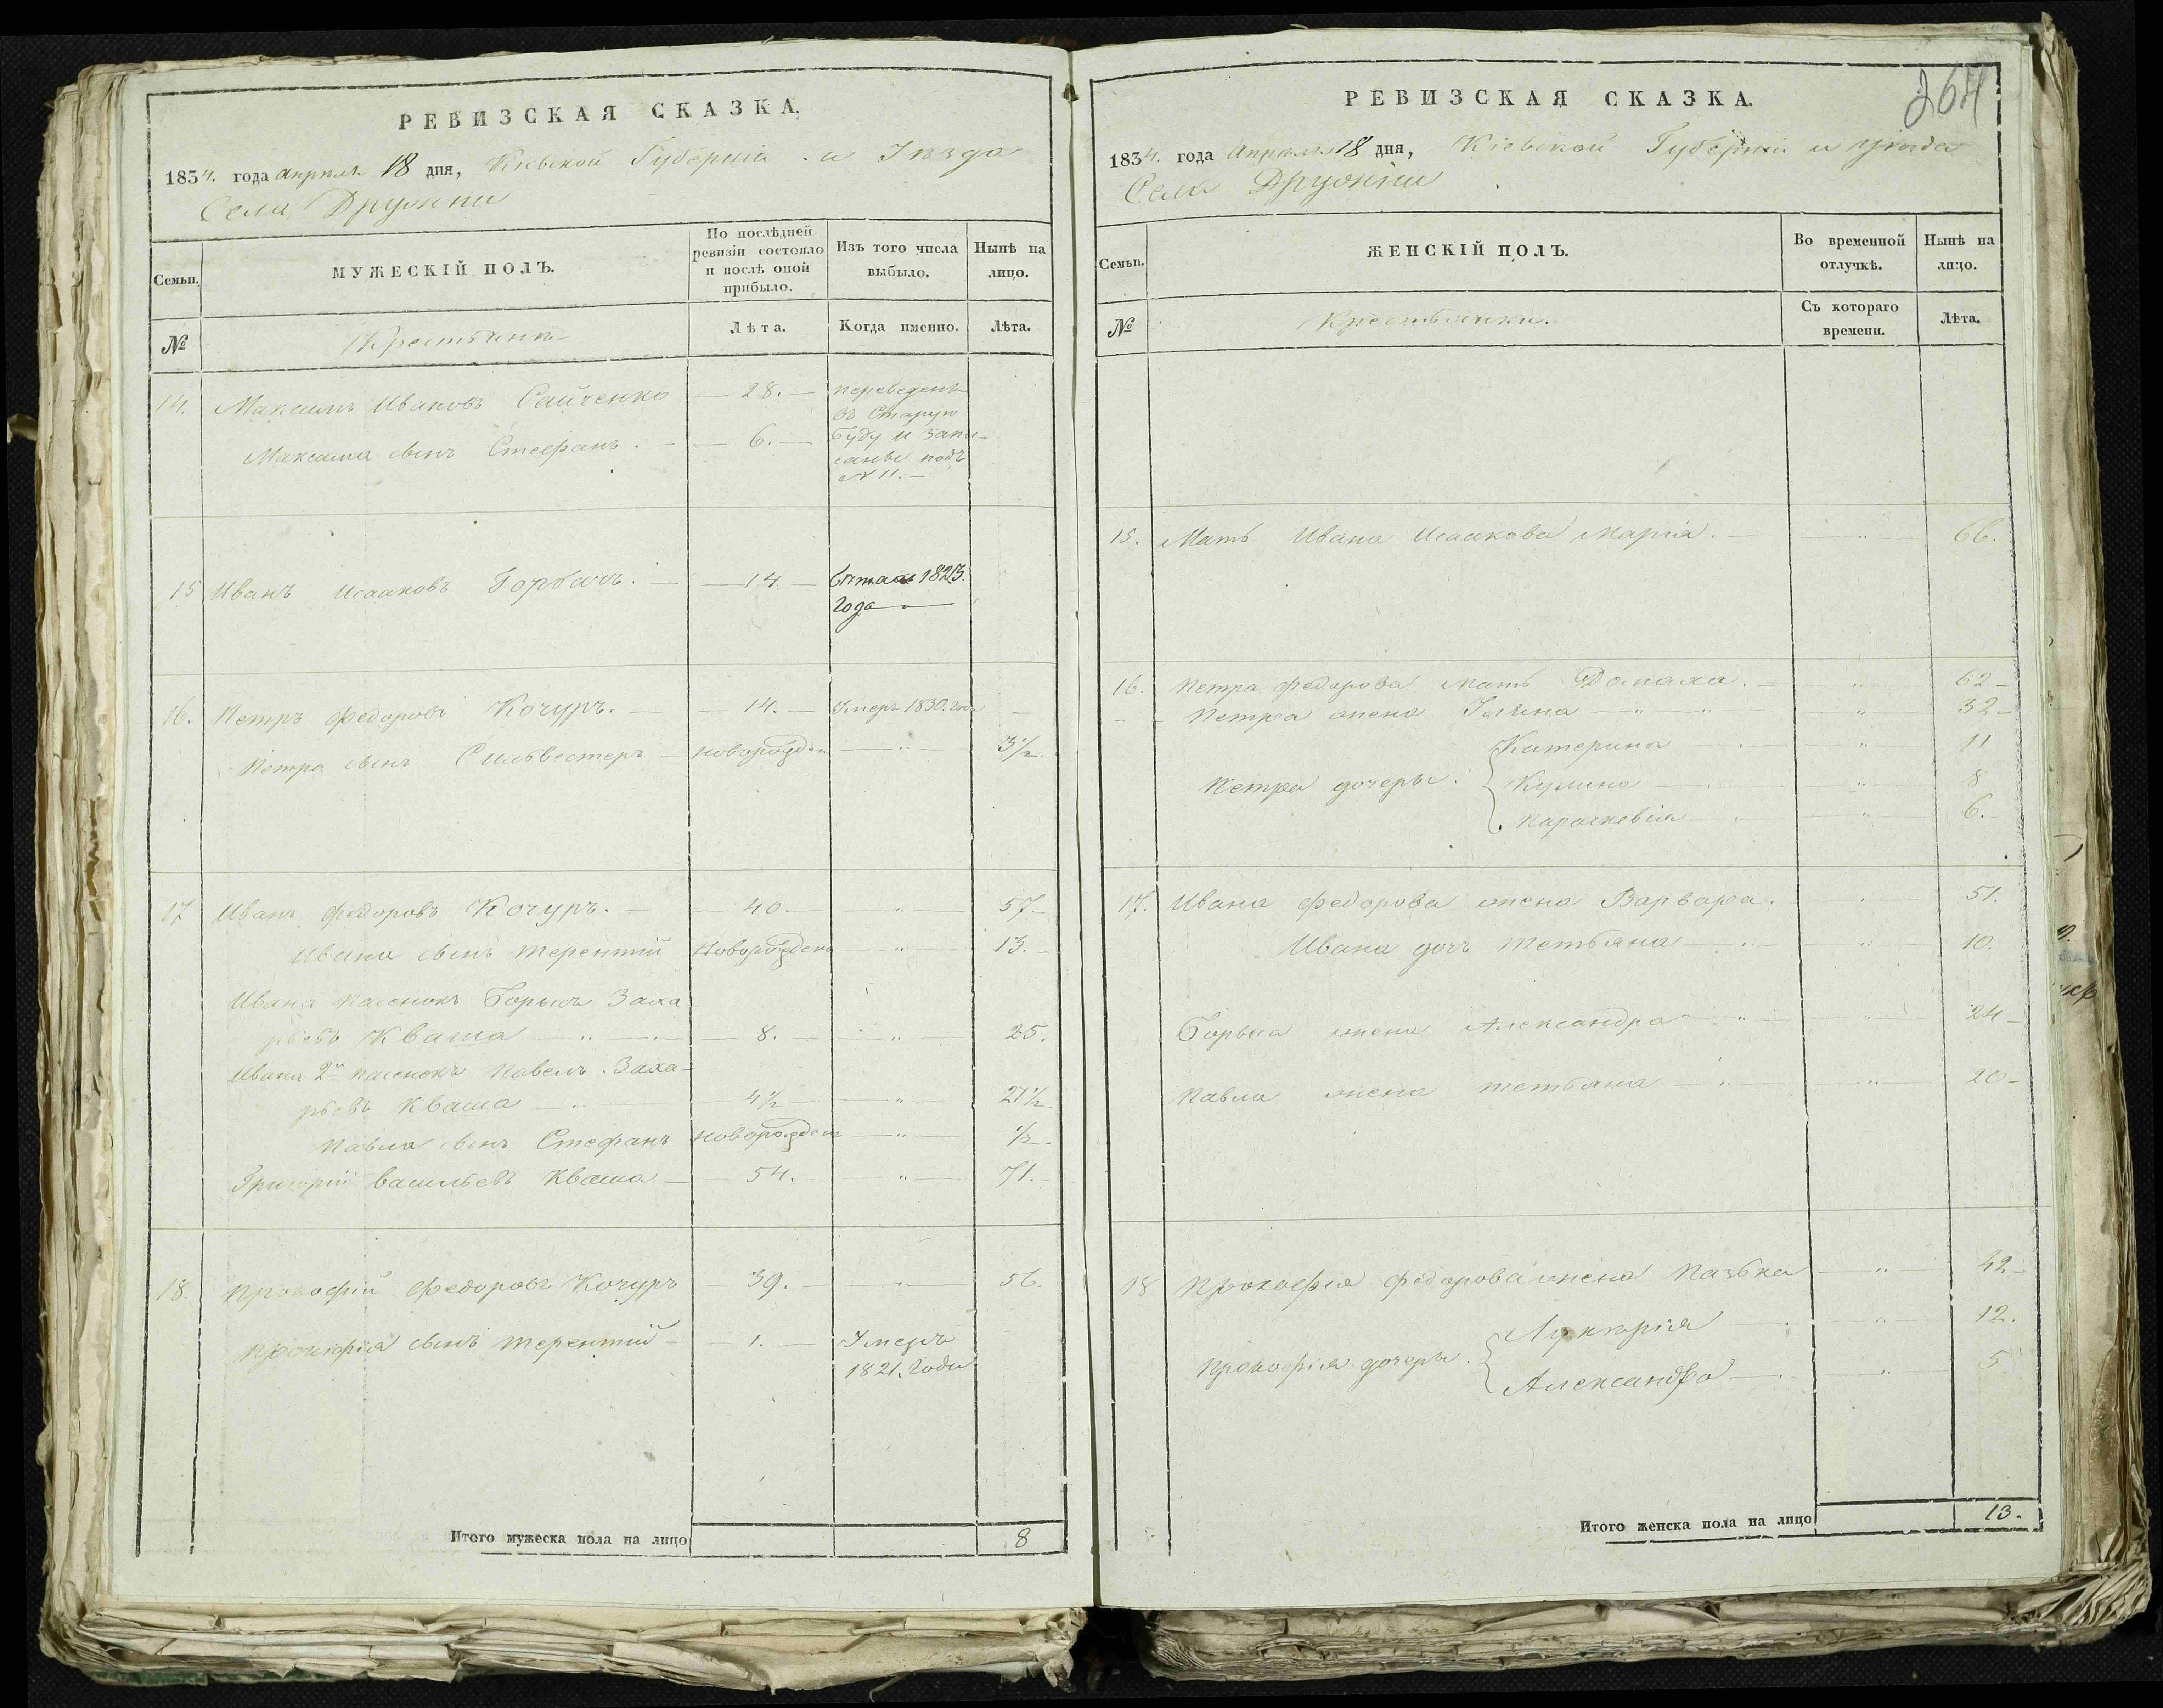 РЕВИЗСКАЯ СКАЗКА.
1834. года апреля 18 дня, Кіевской Губерніи и Уезда
Села Друхни
Семьи.
МУЖЕСКІЙ ПОЛЪ.
По послѣдней ревизіи состояло и послѣ оной прибыло.
Изъ того числа выбыло.
Нынѣ на лицо.
№
Крестьяне
Лѣта.
Когда именно.
Лѣта.
14. Максимъ Ивановъ Сайченко 28. переведены
въ Старую
Максима сынъ Стефанъ. 6. Буду и запи-
саны подъ
N 11.
15 Иванъ Исааковъ Горбачъ. 14. 1823.
года
16. Петръ Федоровъ Кочуръ. 14. Умеръ 1830. года
Петра сынъ Сильвестеръ новорожден " 3½
17 Иванъ Федоровъ Кочуръ. 40. " 57
Ивана сынъ Терентий Новорожденъ " 13.
Ивана пасенокъ Борысъ Заха-
рьевъ Кваша 8. " 25.
Ивана 2й пасенокъ Павелъ Заха-
рьевъ Кваша 4½ " 21½
Павла сынъ Стефанъ Новорожден " ½
Григорій Васильевъ Кваша 54. " 71.
18. Прокофій Федоровъ Кочуръ 39. " 56.
Прокофія сынъ Терентий 1. Умеръ
1821. года
Итого мужеска пола на лицо 8
264
РЕВИЗСКАЯ СКАЗКА.
1834. года апреля 18 дня, Кіевской Губерніи и уезда
Села Друхни
Семьи.
ЖЕНСКІЙ ПОЛЪ.
Во временной отлучкѣ.
Нынѣ на лицо.
№
Крестьянки.
Съ котораго времени.
Лѣта.
15. Мать Ивана Исаакова Марія. " 66.
16. Петра Федорова мать Домаха. " 62
Петра жена Уляна " 32
Катерина " 11
Петра дочеры Кулина " 8
Параскевія " 6.
17. Ивана Федорова жена Варвара. 51.
Ивана дочь Тетьяна " 10.
Борыса жена Александра " 24
Павла жена Тетьяна " 20
18 Прокофія Федорова жена Пазька " 42
Лукерія " 12.
Прокофія дочеры
Александра " 5
Итого женска пола на лицо 13.